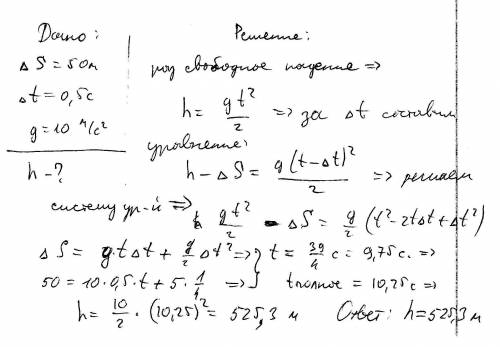 Дано:
Решение:
Δ S = 50м
Δt = 0,5с
g = 10 м/с²
h - ?
свободное падение =>
h = gt²/2 => за Δt составим
уравнение:
h - ΔS = g(t-Δt)²/2 => решаем
систему ур-й =>
gt²/2 - ΔS = g/2 (t² - 2tΔt + Δt²)
ΔS = g·tΔt + g/2 Δt² => } t = 39/4 с = 9,75с. =>
50 = 10·0,5·t + 5·1/4 => tполное = 10,25с =>
h = 10/2 · (10,25)² = 525,3 м Ответ: h = 525,3 м